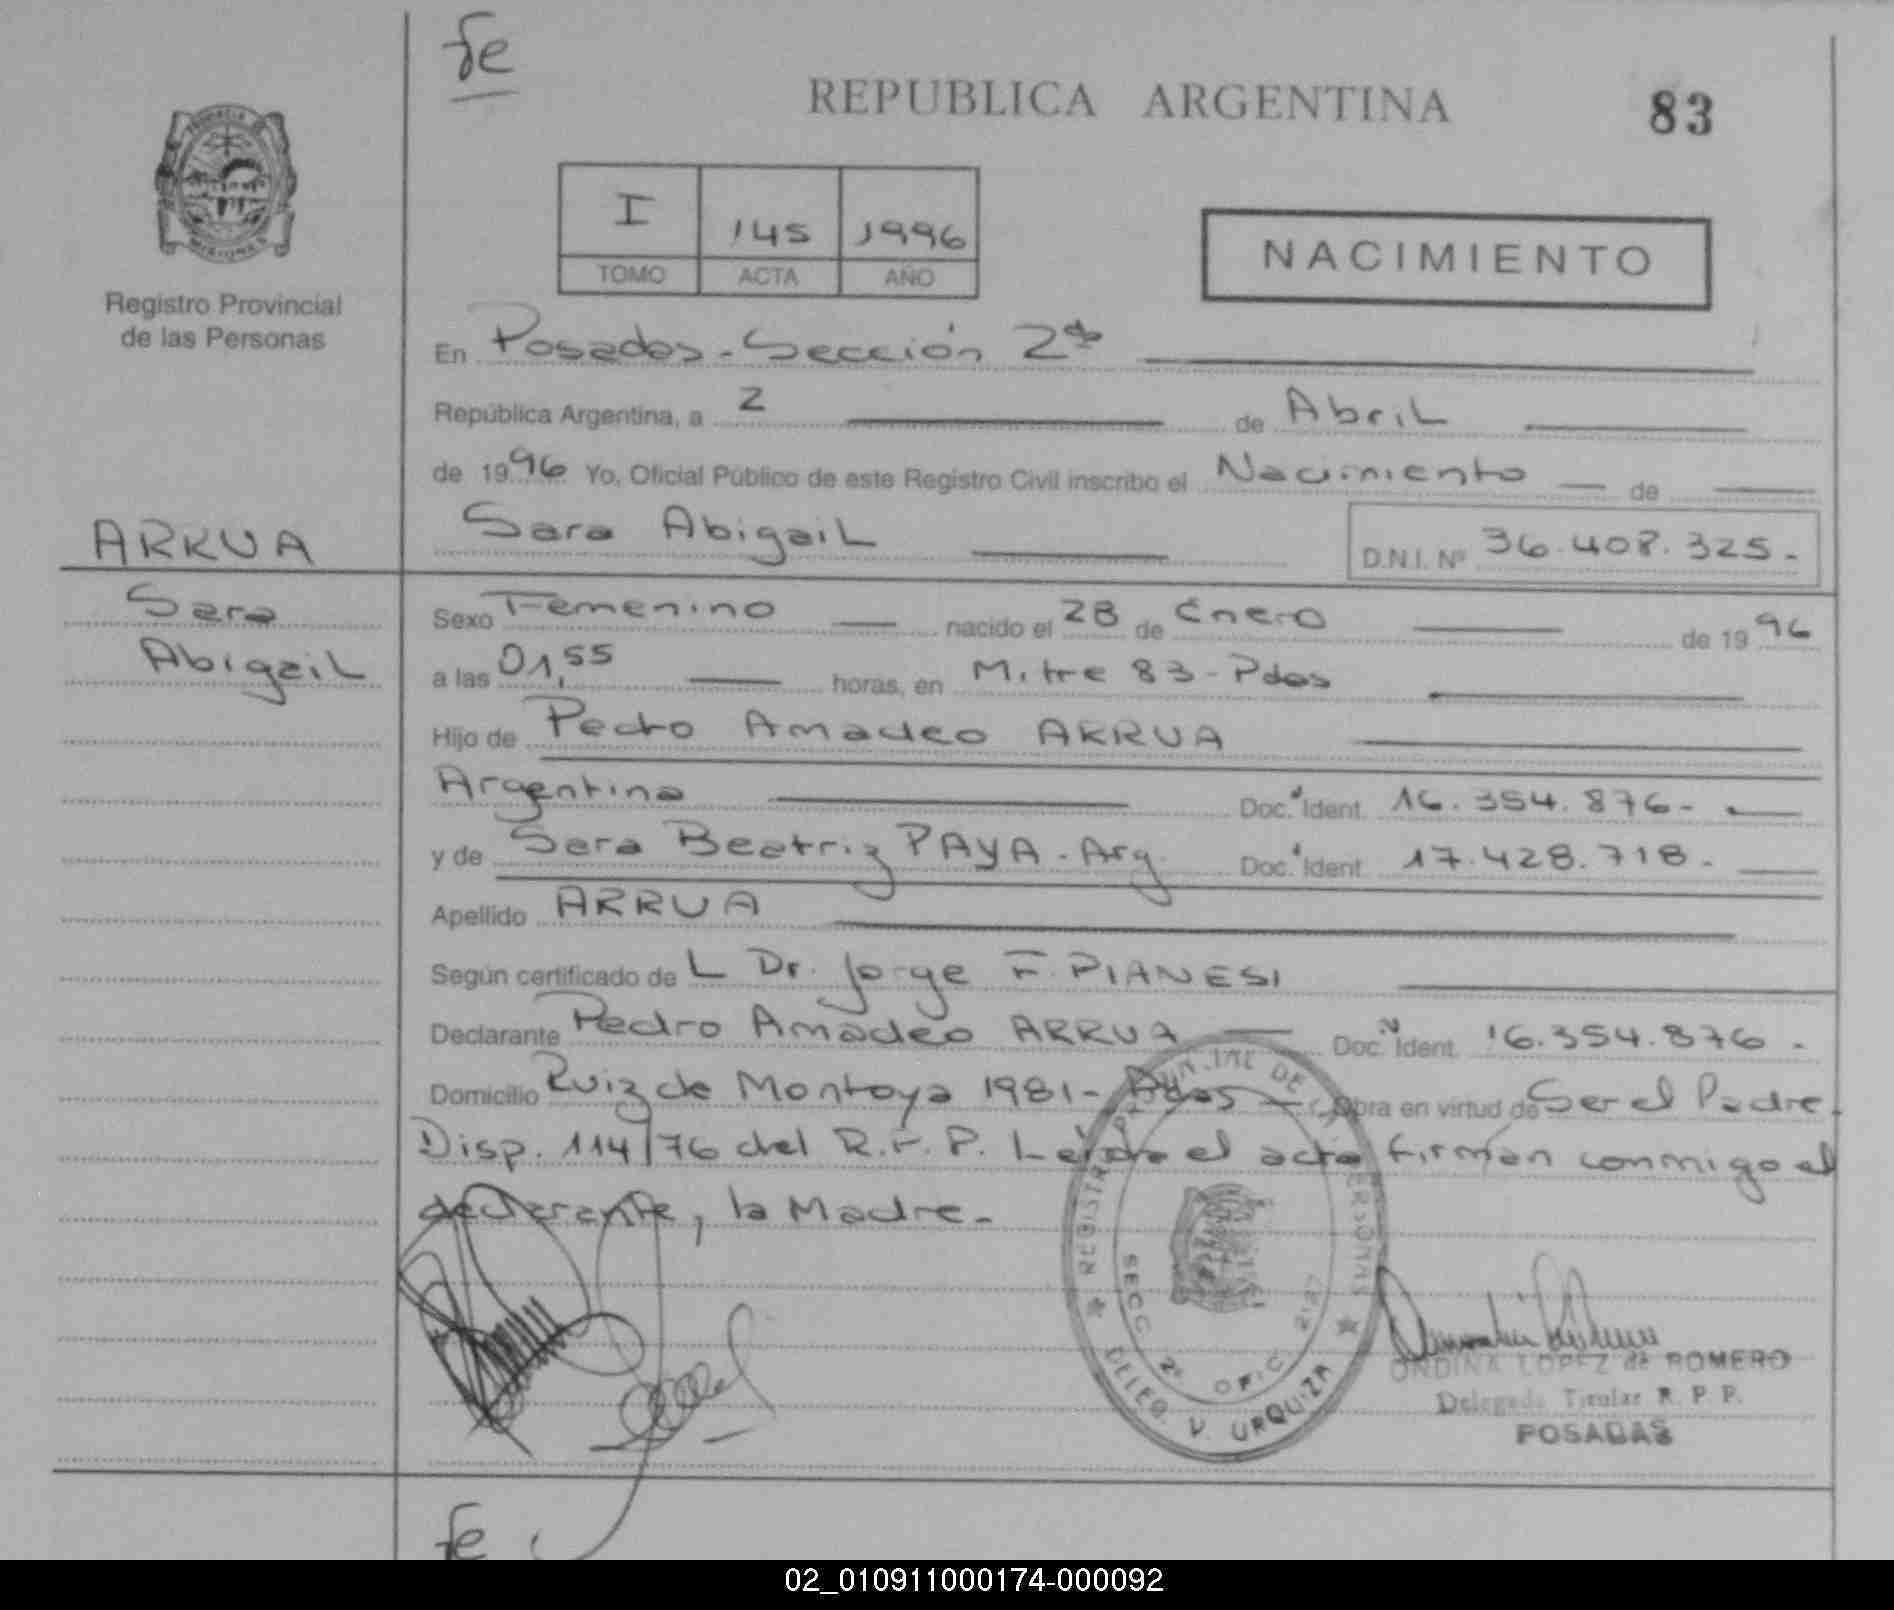 fe
REPUBLICA ARGENTINA 83
I 145 1996
TOMO ACTA AÑO
NACIMIENTO
Registro Provincial
de las Personas
En Posadas - Sección 2da
República Argentina, a 2 de Abril
de 1996 Yo, Oficial Público de este Registro Civil inscribo el Nacimiento de
Sara Abigail D.N.I. Nº 36.408.325.-
ARRUA
Sara
Abigail
Sexo Femenino nacido el 28 de Enero de 1996
a las 01,55 horas, en Mitre 83 - Pdas
Hijo de Pedro Amadeo ARRUA
Argentino Doc. Ident. 16.354.876.-
y de Sara Beatriz PAYA - Arg. Doc. Ident. 17.428.718.-
Apellido ARRUA
Según certificado de L Dr. Jorge F. PIANESI
Declarante Pedro Amadeo ARRUA Doc. Ident. 16.354.876.-
Domicilio Ruiz de Montoya 1981 - Pdas Obra en virtud de Ser el Padre.
Disp. 114/76 del R.P.P. Leída el acta firman conmigo el
declarante, la Madre.-
REGISTRO PROVINCIAL DE LAS PERSONAS
SECC. 2ª OFIC. 2127
DELEG. V. URQUIZA
ONDINA LOPEZ de ROMERO
Delegada Titular R. P. P.
POSADAS
fe
02_010911000174-000092